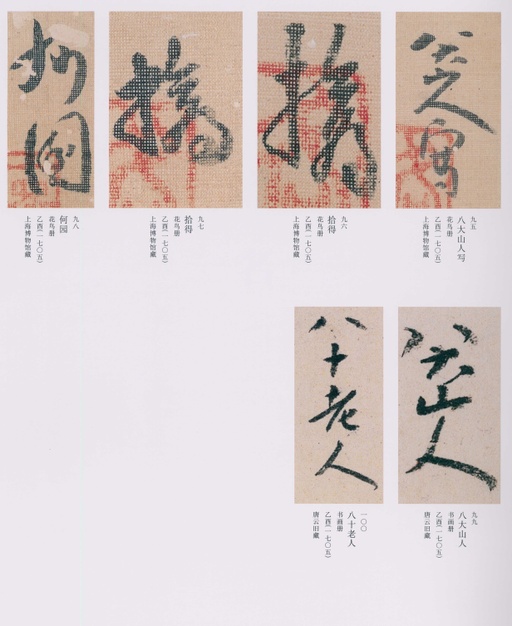 九五
八大山人写
花鸟册
乙酉(一七〇五)
上海博物馆藏
九六
拾得
花鸟册
乙酉(一七〇五)
上海博物馆藏
九七
拾得
花鸟册
乙酉(一七〇五)
上海博物馆藏
九八
何园
花鸟册
乙酉(一七〇五)
上海博物馆藏
八大山人
九九
八大山人
书画册
乙酉(一七〇五)
唐云旧藏
八十老人
一〇〇
八十老人
书画册
乙酉(一七〇五)
唐云旧藏